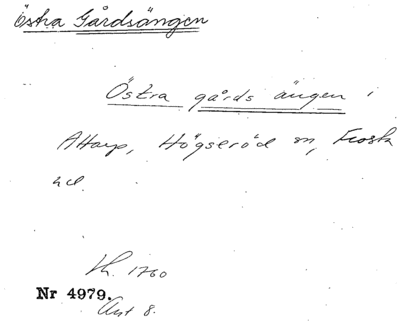 Östra Gårdsängen
Östra gårds ängen i
Attarp, Högseröd sn, Frosta
hd.
Lh. 1760
Nr 4979.
Akt 8.